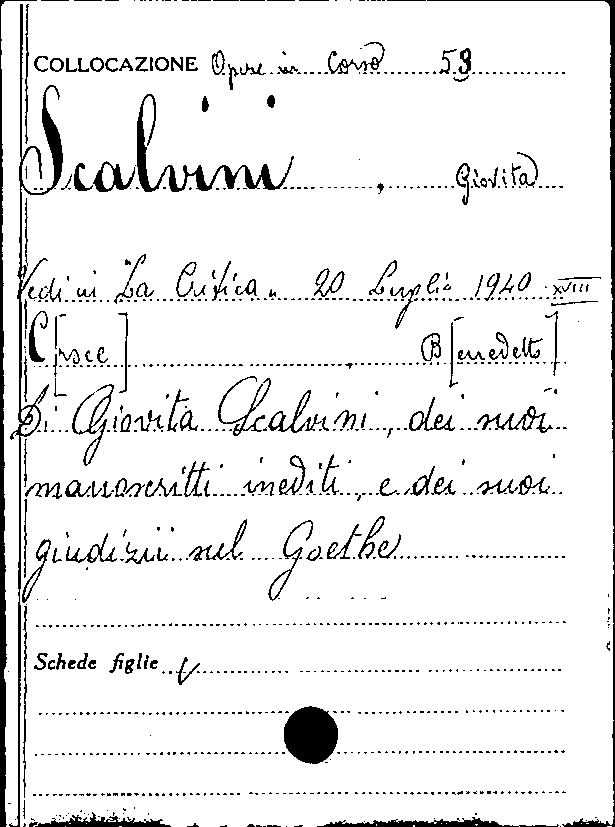 COLLOCAZIONE Opere in Corso 53
Scalvini, Giovita
Vedi in "La Critica" 20 Luglio 1940 XVIII
C[roce], B[enedetto]
Di Giovita Scalvini, dei suoi
manoscritti inediti, e dei suoi
giudizii sul Goethe
Schede figlie